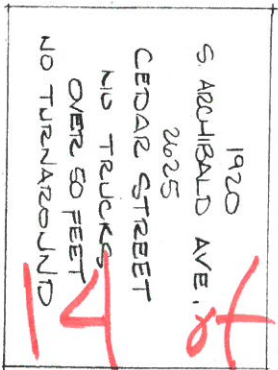 1920
S. ARCHIBALD AVE.
2625
CEDAR STREET
NO TRUCKS
OVER 50 FEET
NO TURNAROUND
14